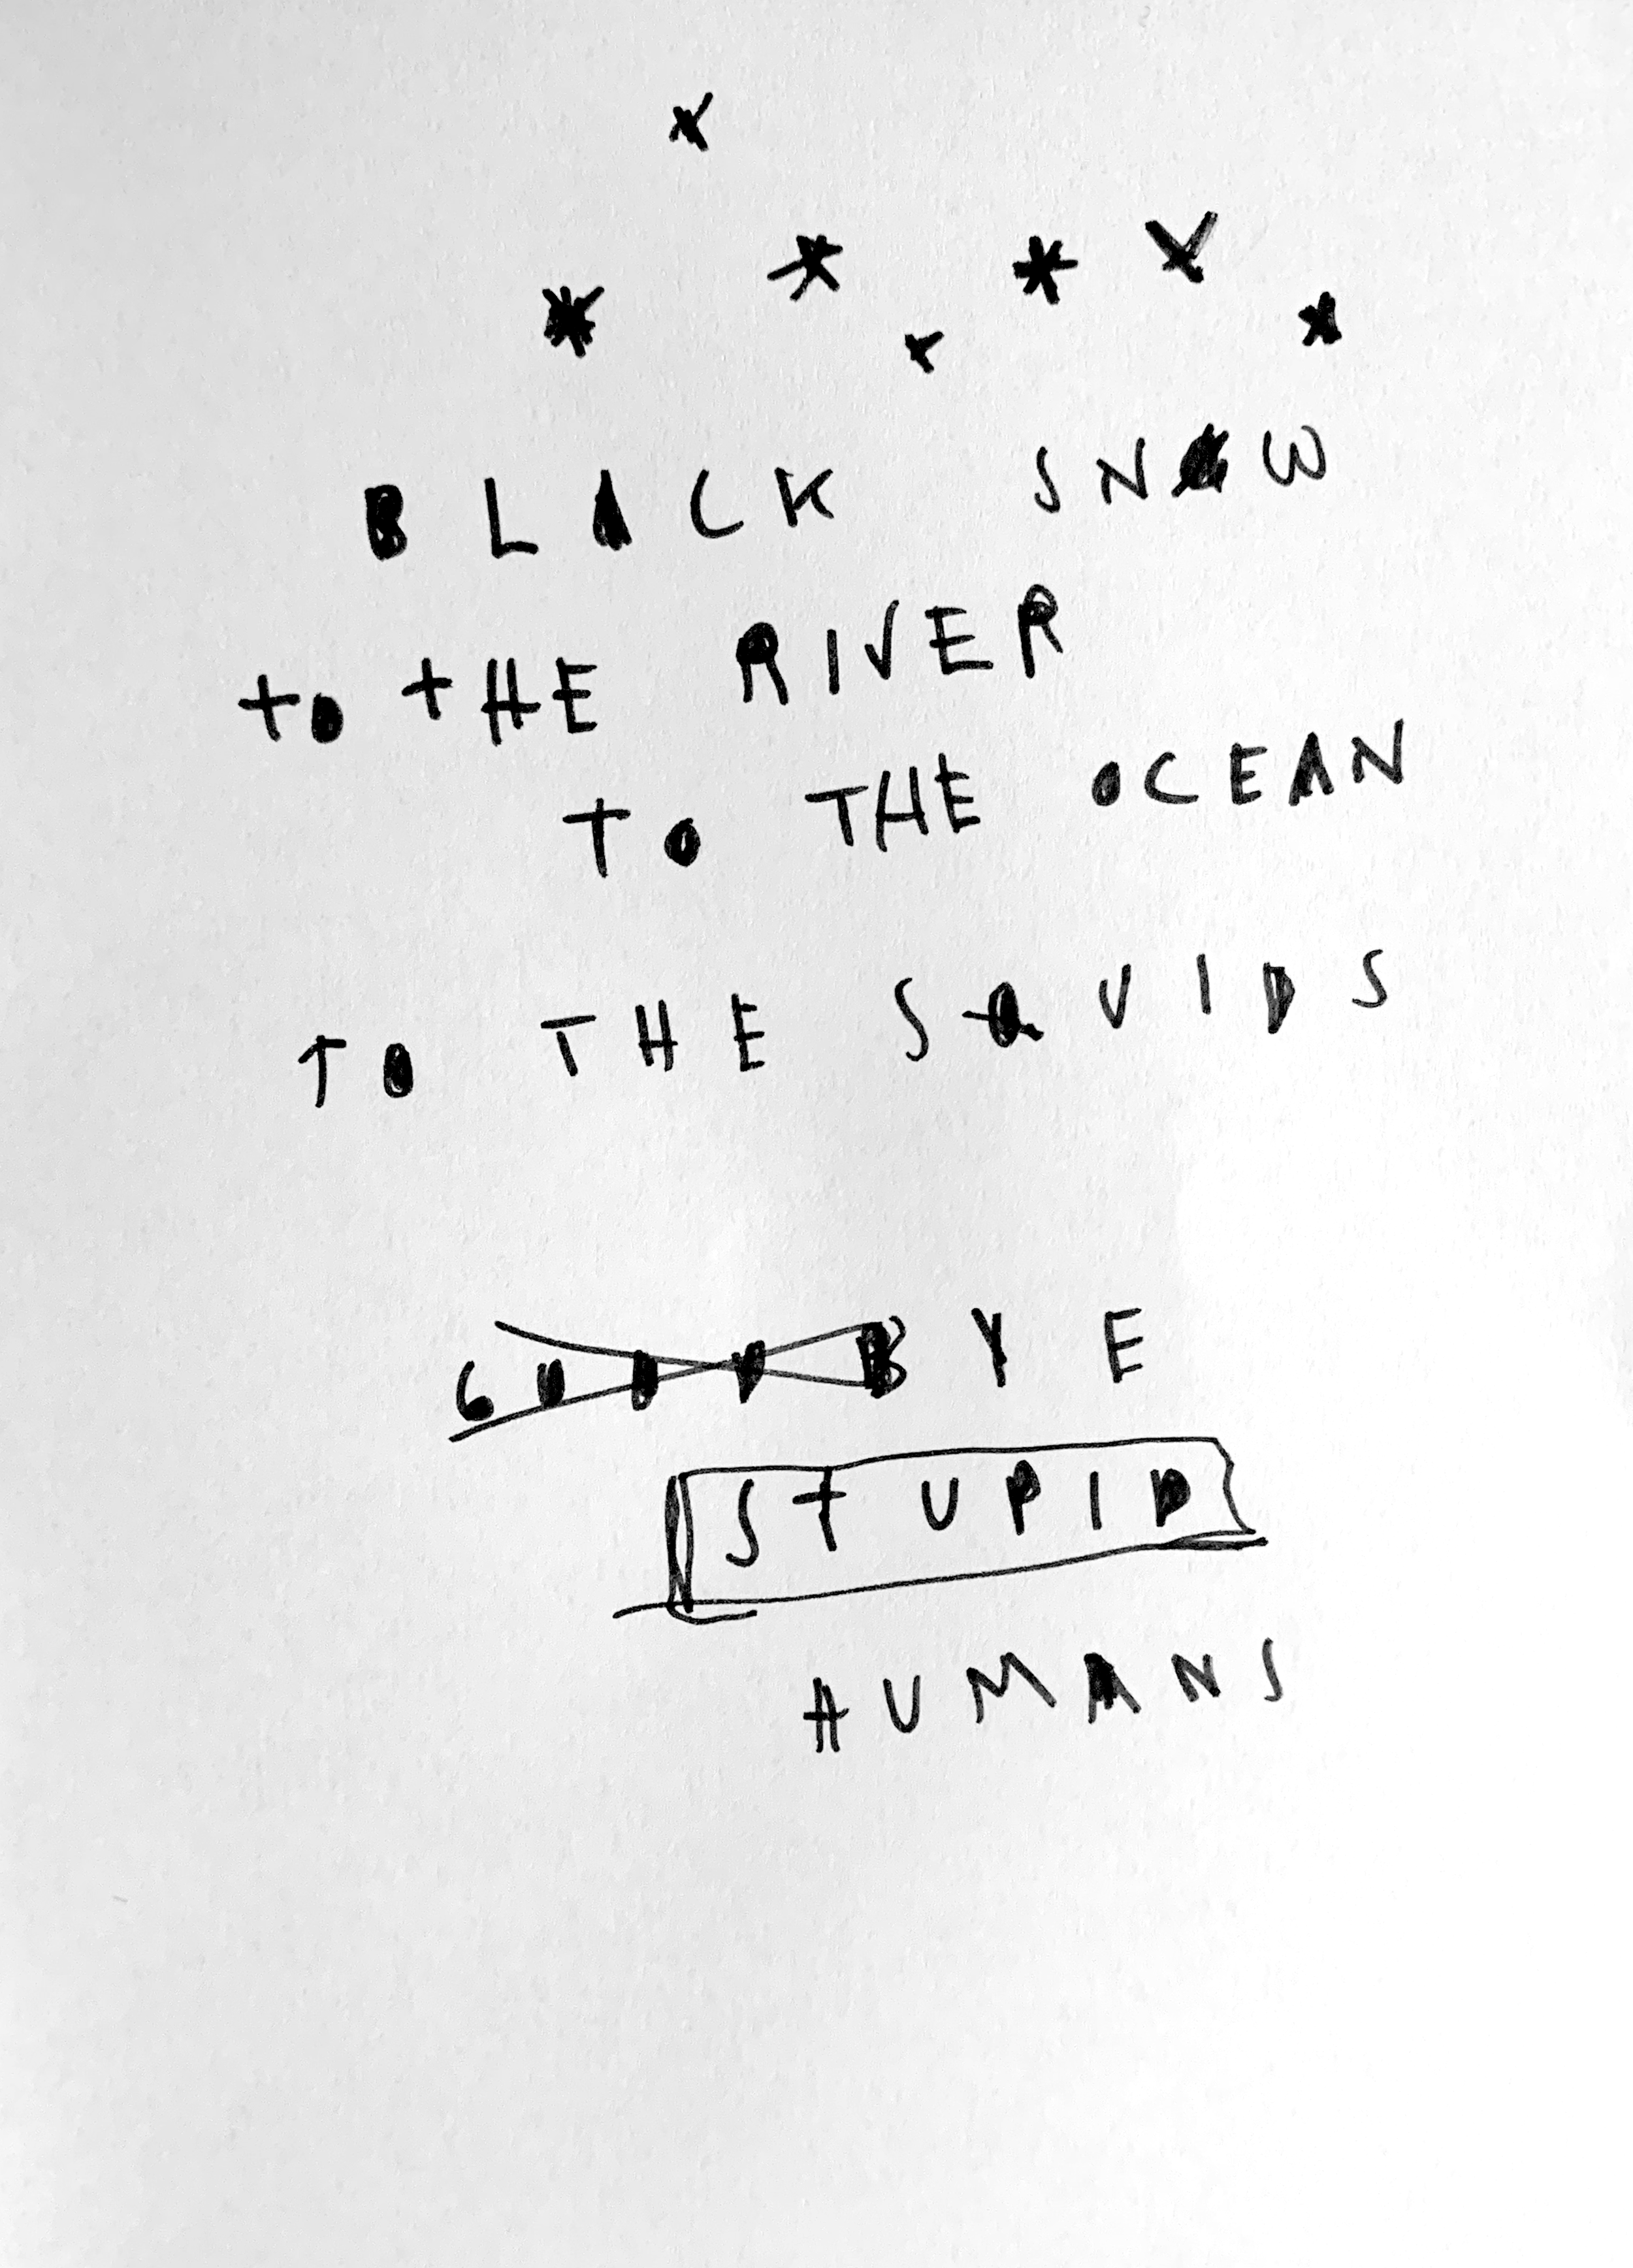 BLACK SNOW
to tHE RIVER
TO THE OCEAN
TO THE SQUIDS
GOODBYE
STUPID
HUMANS